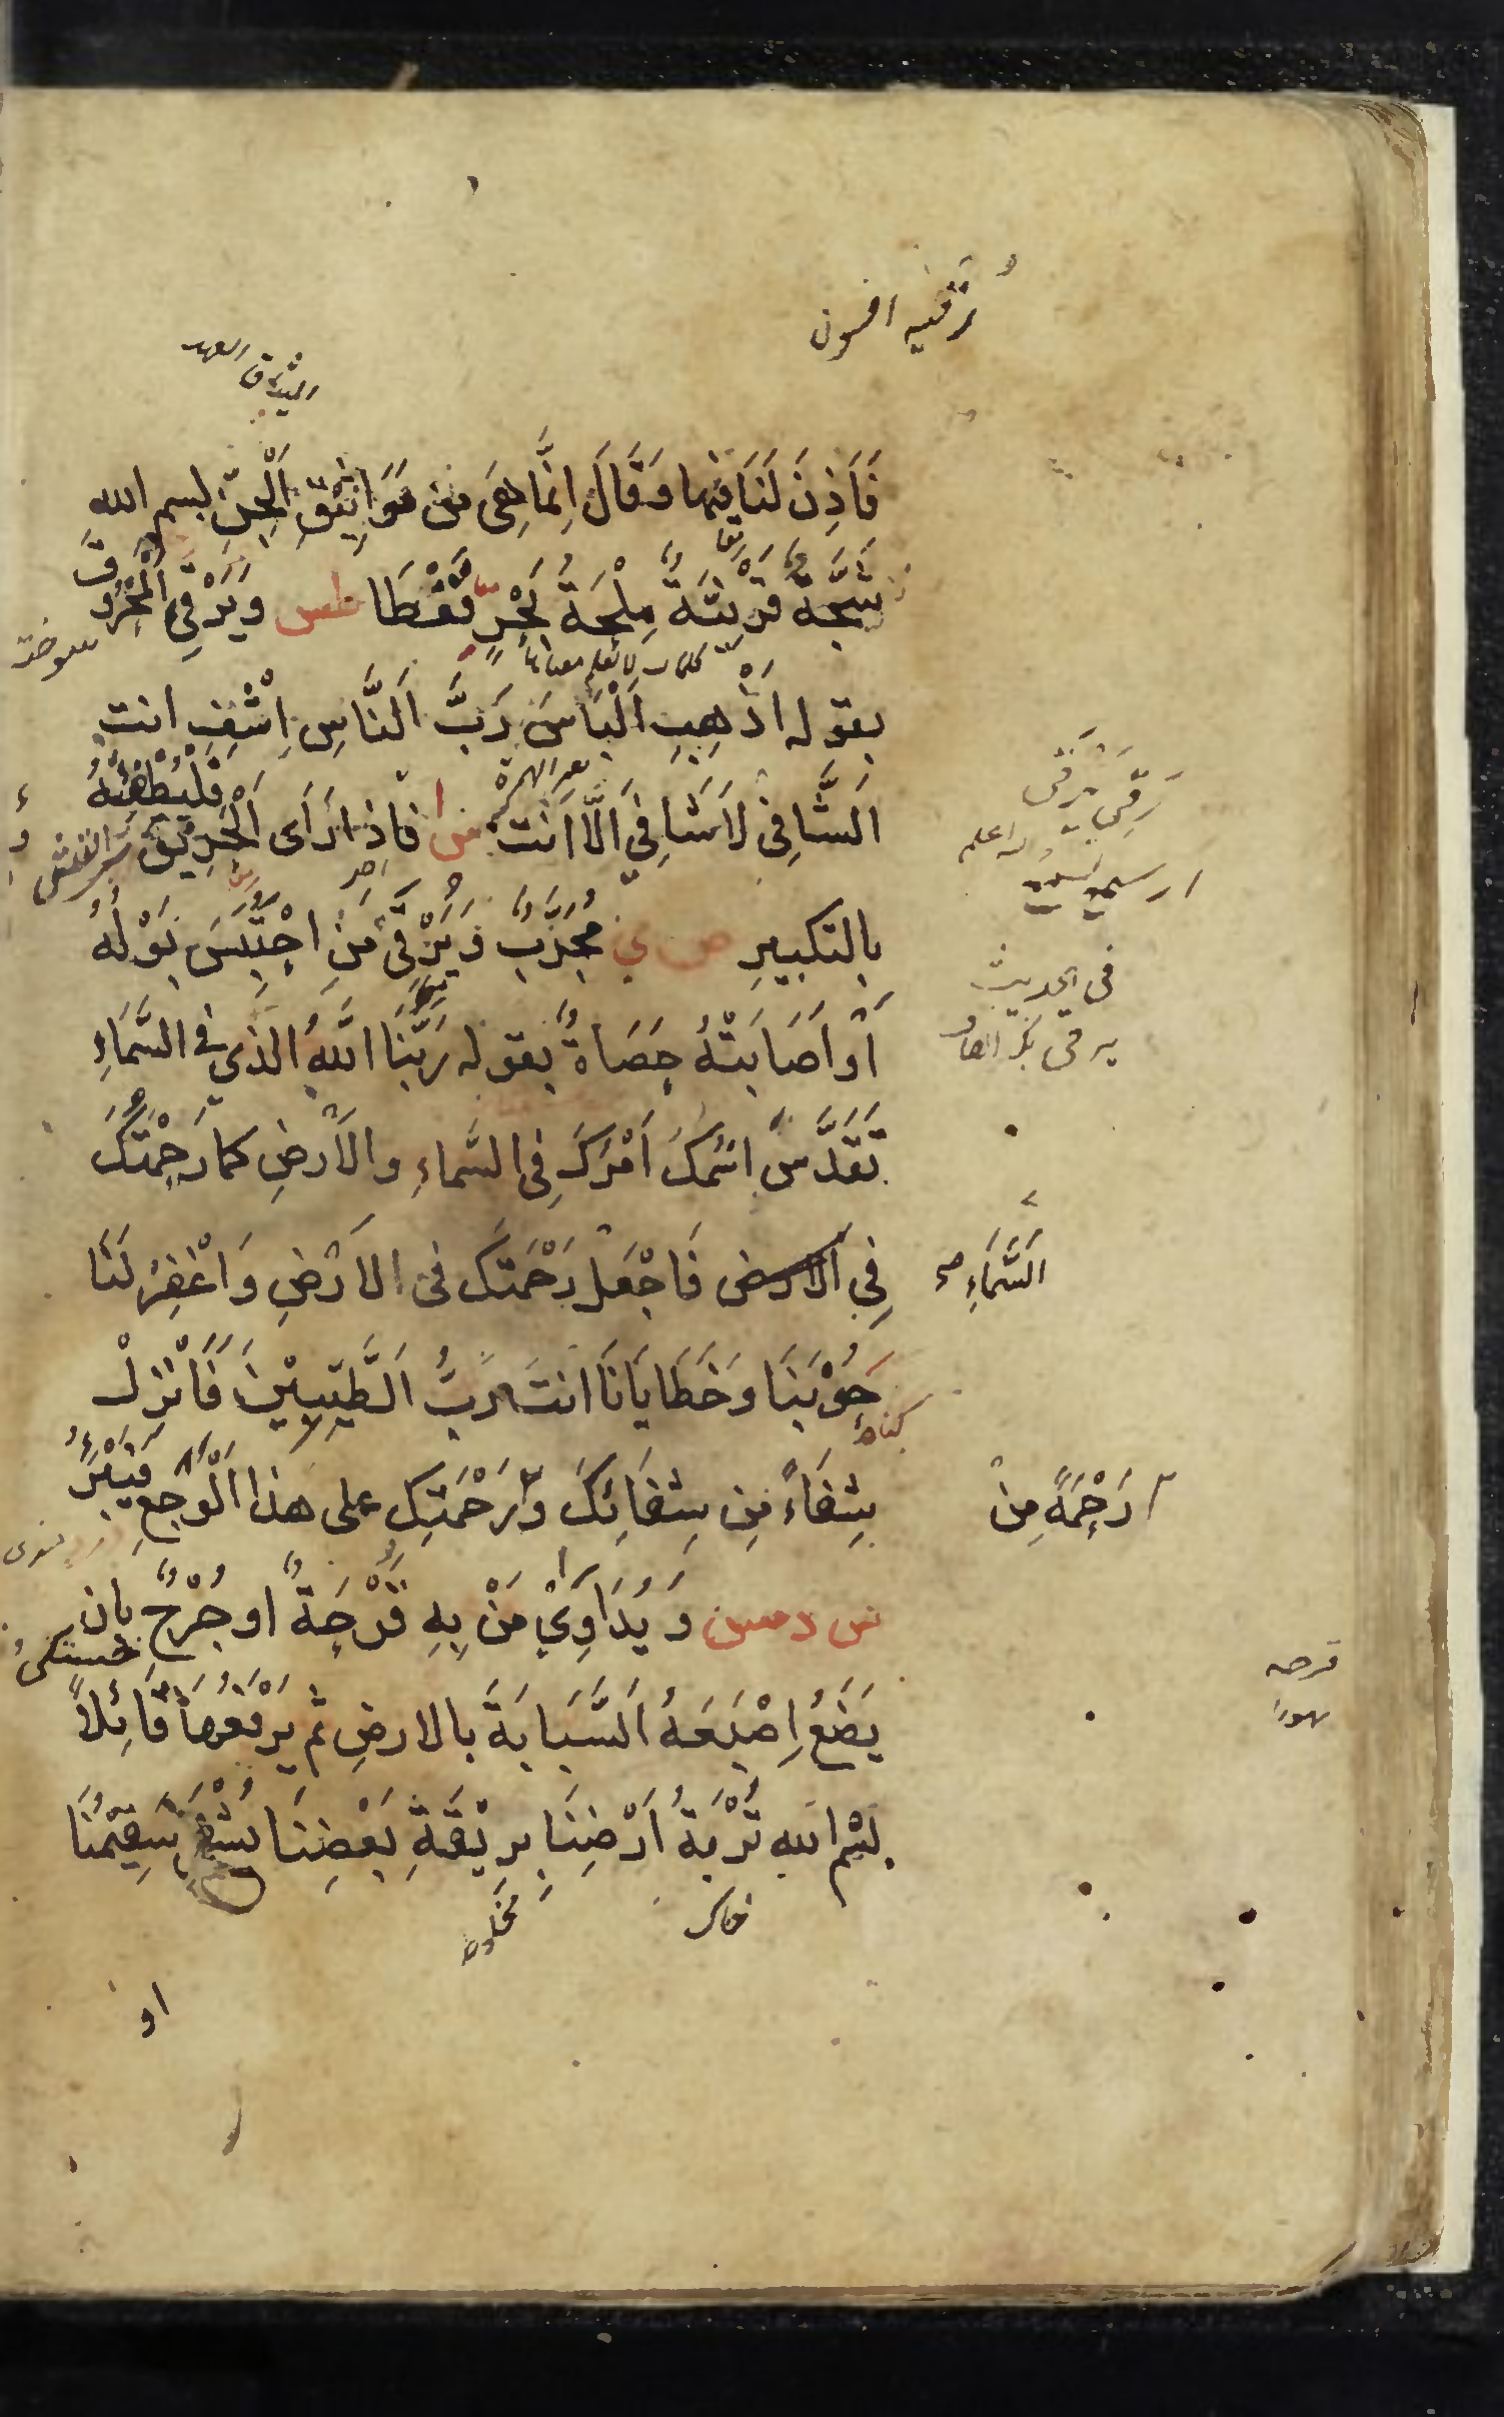 رقيه افسون
الميثاق العهد
فَاَذِنَ لَنَا فِيْهَا وَقَالَ اِنَّمَا هِىَ مِنْ مَوَاثِيْقِ الْجِنِّ بسم الله
شَجَّةٌ قَرْنِيَّةٌ مِلْحَةُ بَحْرٍ قَفْطَا طس وَيَرْقِي الْمَحْرُوقَ
سوخته
كلمات لا يعلم معناها
بقوله اَذْهِبِ الْبَاْسَ رَبَّ النَّاسِ اِشْفِ انت
اَلشَّافِى لَا شَافِيَ اِلَّا اَنْتَ س ا فاذا رَاَى الْحَرِيْقَ فَلْيُطْفِئْهُ
رَقِىَ يَرْقَى
بِالتكبيرِ ص ى مُجَرَّبٌ وَيَرْقِىْ مَنِ احْتَبَسَ بَوْلُهُ
فى الحديث
اَوْ اَصَابَتْهُ حَصَاةٌ بقوله رَبُّنَا اللهُ الذى فى السَّمَاءِ
تَقَدَّسَ اسْمُكَ اَمْرُكَ فِى السَّماءِ والاَرْضِ كما رَحْمَتُكَ
فِي الارض فَاجْعَلْ رَحْمَتَكَ فى الاَرْضِ وَاغْفِرْ لَنَا
السَّمَاءِ صح
حَوْبَنَا وَخَطَايَانَا انتَ رَبُّ الطَّيِّبِيْنَ فَاَنْزِلْ
كناه
شِفَاءً مِن شِفَائِكَ وَرَحْمَتِكَ على هذا الْوَجعِ فَيَبْرَءُ
رَحْمَةً مِنْ
س د مس وَيُدَاوِىْ مَنْ بِهِ قَرْحَةٌ او جُرْحٌ بان
خستكى
يَضَعُ اِصْبَعَهُ السَّبَابَةَ بالارضِ ثُمَّ يَرْفَعُهَا قَائِلاً
قرحه
بِسْمِ اللهِ تُرْبَةُ اَرْضِنَا بِرِيْقَةِ بَعْضِنَا يُشْفَى سَقِيْمُنَا
خاك
او